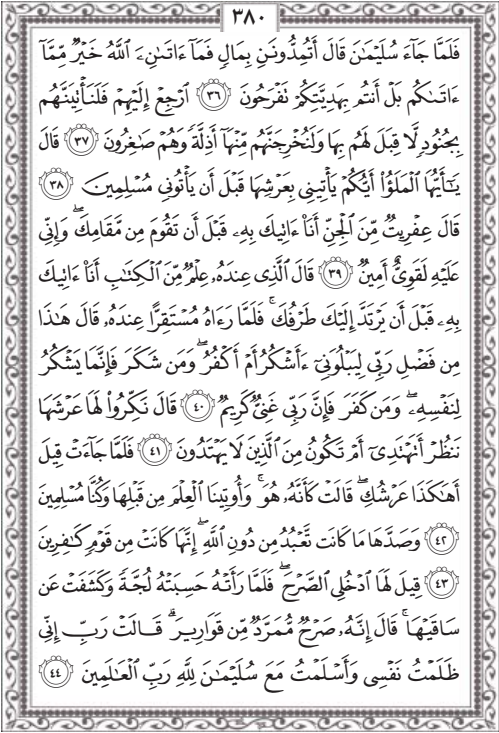 ٣٨٠
فَلَمَّا جَآءَ سُلَيْمَٰنَ قَالَ أَتُمِدُّونَنِ بِمَالٍ فَمَآ ءَاتَىٰنِۦَ ٱللَّهُ خَيْرٌ مِّمَّآ
ءَاتَىٰكُم بَلْ أَنتُم بِهَدِيَّتِكُمْ تَفْرَحُونَ ٣٦ ٱرْجِعْ إِلَيْهِمْ فَلَنَأْتِيَنَّهُم
بِجُنُودٍ لَّا قِبَلَ لَهُم بِهَا وَلَنُخْرِجَنَّهُم مِّنْهَآ أَذِلَّةً وَهُمْ صَٰغِرُونَ ٣٧ قَالَ
يَٰٓأَيُّهَا ٱلْمَلَؤُا۟ أَيُّكُمْ يَأْتِينِى بِعَرْشِهَا قَبْلَ أَن يَأْتُونِى مُسْلِمِينَ ٣٨
قَالَ عِفْرِيتٌ مِّنَ ٱلْجِنِّ أَنَا۠ ءَاتِيكَ بِهِۦ قَبْلَ أَن تَقُومَ مِن مَّقَامِكَ ۖ وَإِنِّى
عَلَيْهِ لَقَوِىٌّ أَمِينٌ ٣٩ قَالَ ٱلَّذِى عِندَهُۥ عِلْمٌ مِّنَ ٱلْكِتَٰبِ أَنَا۠ ءَاتِيكَ
بِهِۦ قَبْلَ أَن يَرْتَدَّ إِلَيْكَ طَرْفُكَ ۚ فَلَمَّا رَءَاهُ مُسْتَقِرًّا عِندَهُۥ قَالَ هَٰذَا
مِن فَضْلِ رَبِّى لِيَبْلُوَنِىٓ ءَأَشْكُرُ أَمْ أَكْفُرُ ۖ وَمَن شَكَرَ فَإِنَّمَا يَشْكُرُ
لِنَفْسِهِۦ ۖ وَمَن كَفَرَ فَإِنَّ رَبِّى غَنِىٌّ كَرِيمٌ ٤٠ قَالَ نَكِّرُوا۟ لَهَا عَرْشَهَا
نَنظُرْ أَتَهْتَدِىٓ أَمْ تَكُونُ مِنَ ٱلَّذِينَ لَا يَهْتَدُونَ ٤١ فَلَمَّا جَآءَتْ قِيلَ
أَهَٰكَذَا عَرْشُكِ ۖ قَالَتْ كَأَنَّهُۥ هُوَ ۚ وَأُوتِينَا ٱلْعِلْمَ مِن قَبْلِهَا وَكُنَّا مُسْلِمِينَ
٤٢ وَصَدَّهَا مَا كَانَت تَّعْبُدُ مِن دُونِ ٱللَّهِ ۖ إِنَّهَا كَانَتْ مِن قَوْمٍ كَٰفِرِينَ
٤٣ قِيلَ لَهَا ٱدْخُلِى ٱلصَّرْحَ ۖ فَلَمَّا رَأَتْهُ حَسِبَتْهُ لُجَّةً وَكَشَفَتْ عَن
سَاقَيْهَا ۚ قَالَ إِنَّهُۥ صَرْحٌ مُّمَرَّدٌ مِّن قَوَارِيرَ ۗ قَالَتْ رَبِّ إِنِّى
ظَلَمْتُ نَفْسِى وَأَسْلَمْتُ مَعَ سُلَيْمَٰنَ لِلَّهِ رَبِّ ٱلْعَٰلَمِينَ ٤٤